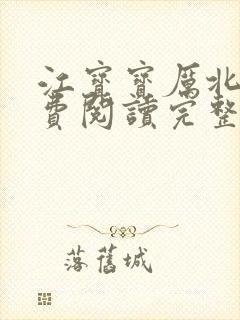 江寶寶厲北
費閱讀完整
落舊城